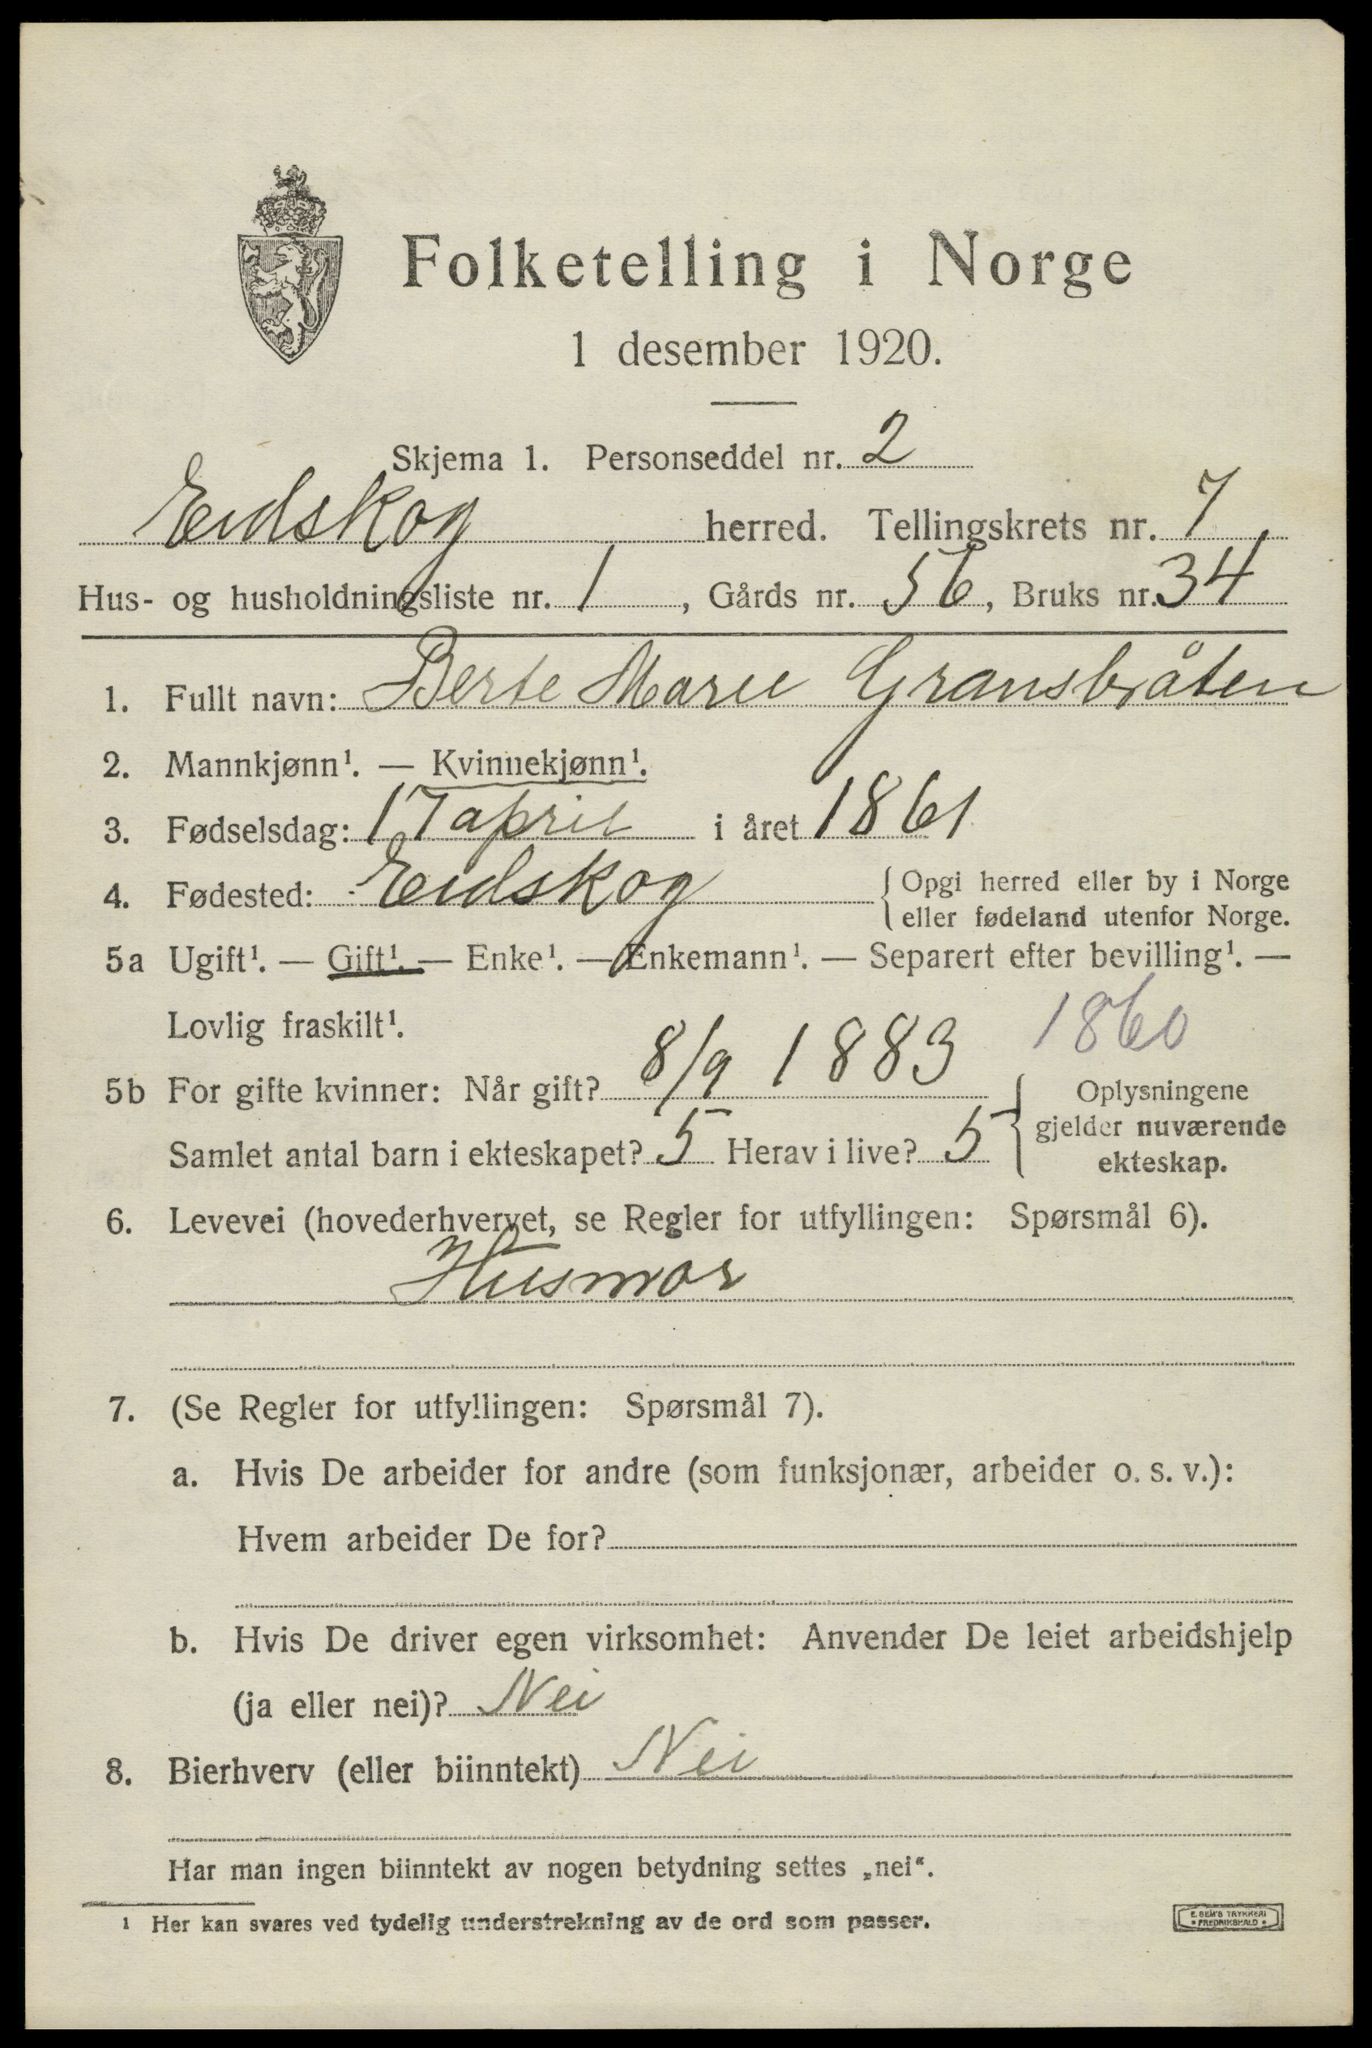 Folketelling i Norge
1 desember 1920.
Skjema 1. Personseddel nr. 2
Eidskog herred. Tellingskrets nr. 7
Hus- og husholdningsliste nr. 1, Gårds nr. 56, Bruks nr. 34
1. Fullt navn: Berte Marie Gransbråten
2. Mannkjønn¹. — Kvinnekjønn¹.
3. Fødselsdag: 17 april i året 1861
4. Fødested: Eidskog { Opgi herred eller by i Norge
eller fødeland utenfor Norge.
5a Ugift¹. — Gift¹. — Enke¹. — Enkemann¹. — Separert efter bevilling¹. —
Lovlig fraskilt¹.
1860
5b For gifte kvinner: Når gift? 8/9 1883 { Oplysningene
gjelder nuværende
ekteskap.
Samlet antal barn i ekteskapet? 5 Herav i live? 5
6. Levevei (hovederhvervet, se Regler for utfyllingen: Spørsmål 6).
Husmor
7. (Se Regler for utfyllingen: Spørsmål 7).
a. Hvis De arbeider for andre (som funksjonær, arbeider o. s. v.):
Hvem arbeider De for?
b. Hvis De driver egen virksomhet: Anvender De leiet arbeidshjelp
(ja eller nei)? Nei
8. Bierhverv (eller biinntekt) Nei
Har man ingen biinntekt av nogen betydning settes „nei“.
¹ Her kan svares ved tydelig understrekning av de ord som passer.
E. SEM'S TRYKKERI
• FREDRIKSHALD •